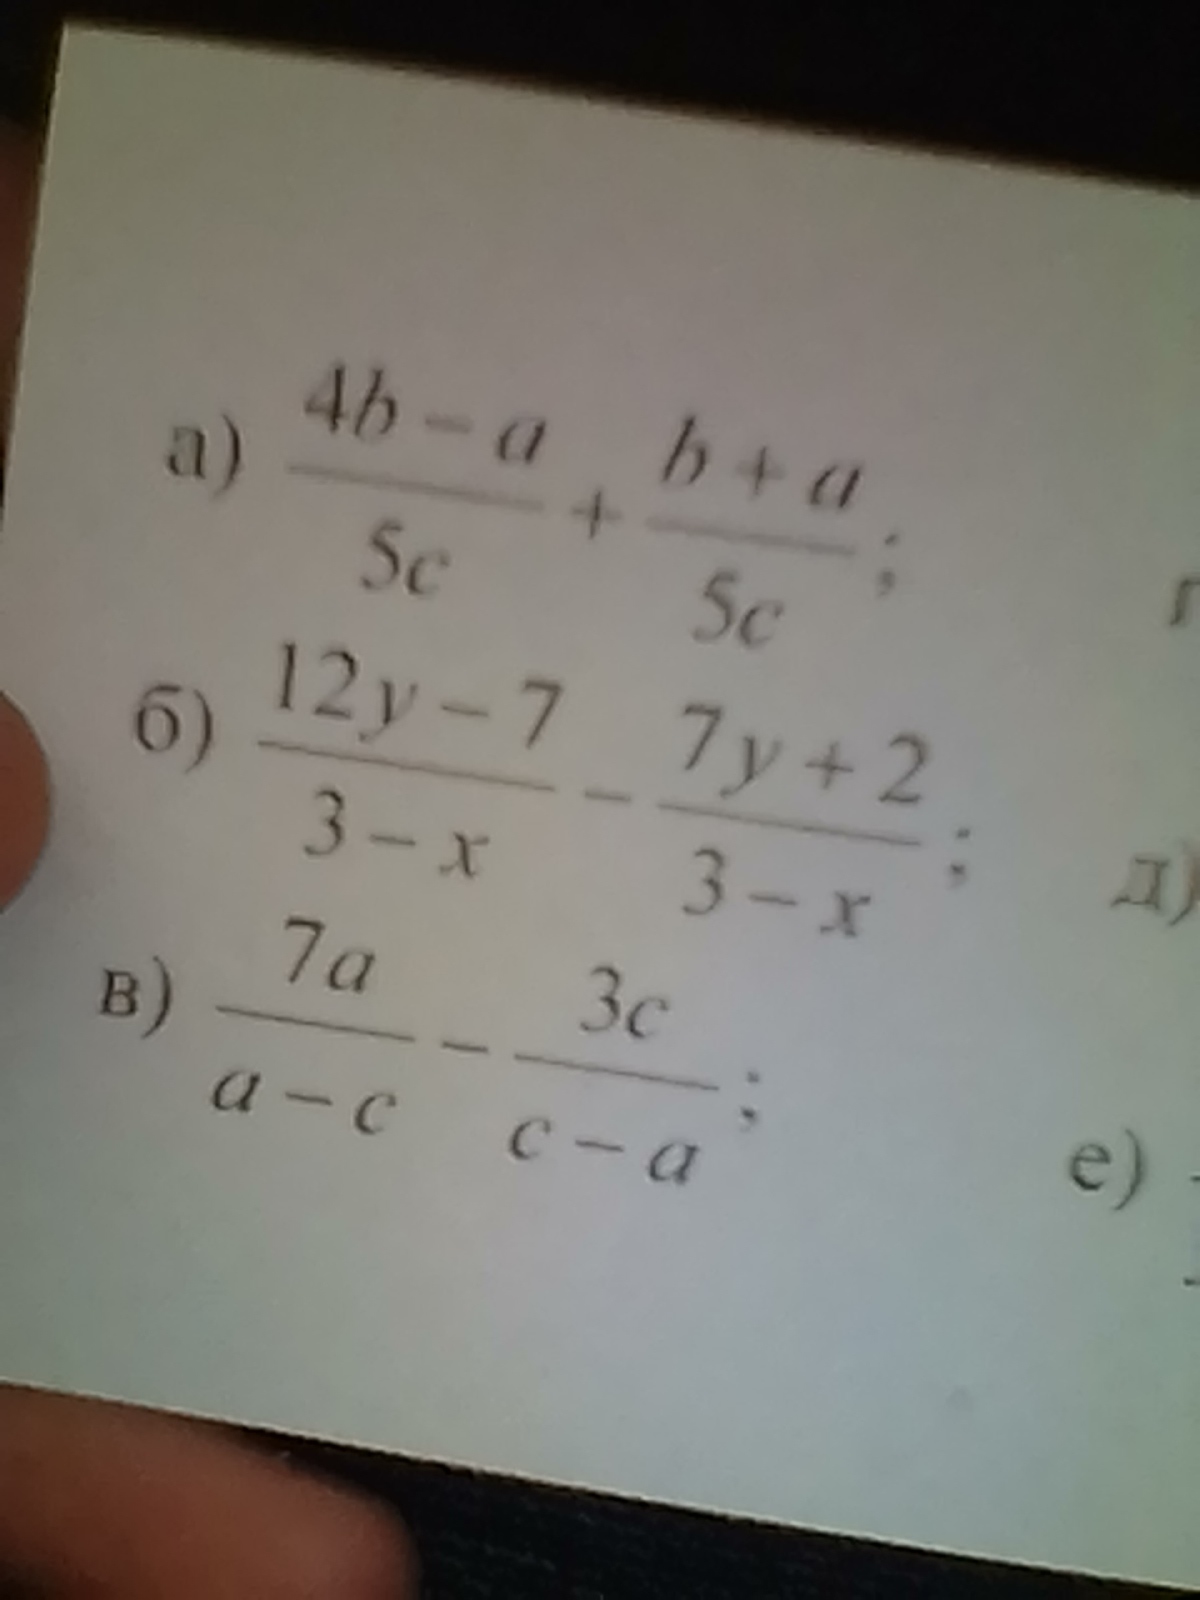 а) \frac{4b - a}{5c} + \frac{b + a}{5c};
б) \frac{12y - 7}{3 - x} - \frac{7y + 2}{3 - x};
д)
в) \frac{7a}{a - c} - \frac{3c}{c - a};
е)